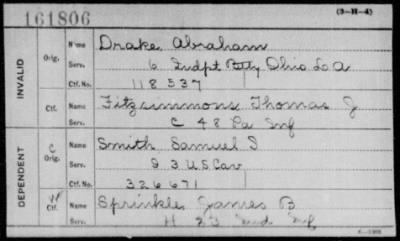 161806
(3-H-4)
INVALID
Orig.
Name Drake Abraham
Serv. 6 Indpt Batty Ohio L A
Ctf. No. 118537
Ctf.
Name Fitzsimmons Thomas J
Serv. C 48 Pa Inf
DEPENDENT
C
Orig.
Name Smith Samuel S
Serv. 3 US Cav
Ctf. No. 326671
W
Ctf.
Name Sprinkle James B
Serv. H 23 Ind Inf